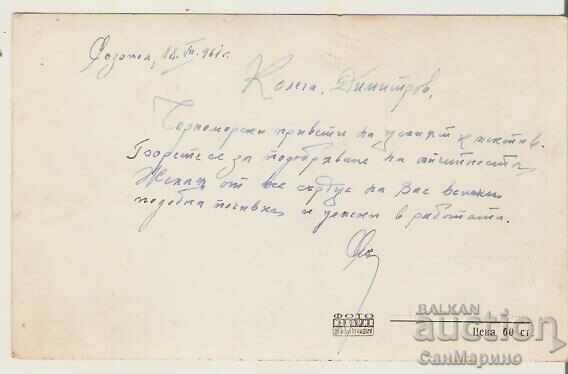 Созопол, 18.VII.961 г.
Колега Димитров,
Черноморски привети на целият колектив.
Гответе се за подобряване на отчетността
Желая от все сърце на Вас всички
подобна почивка и успехи в работата.
ФОТО
Цена 60 ст
BALKAN
auction
СанМарино